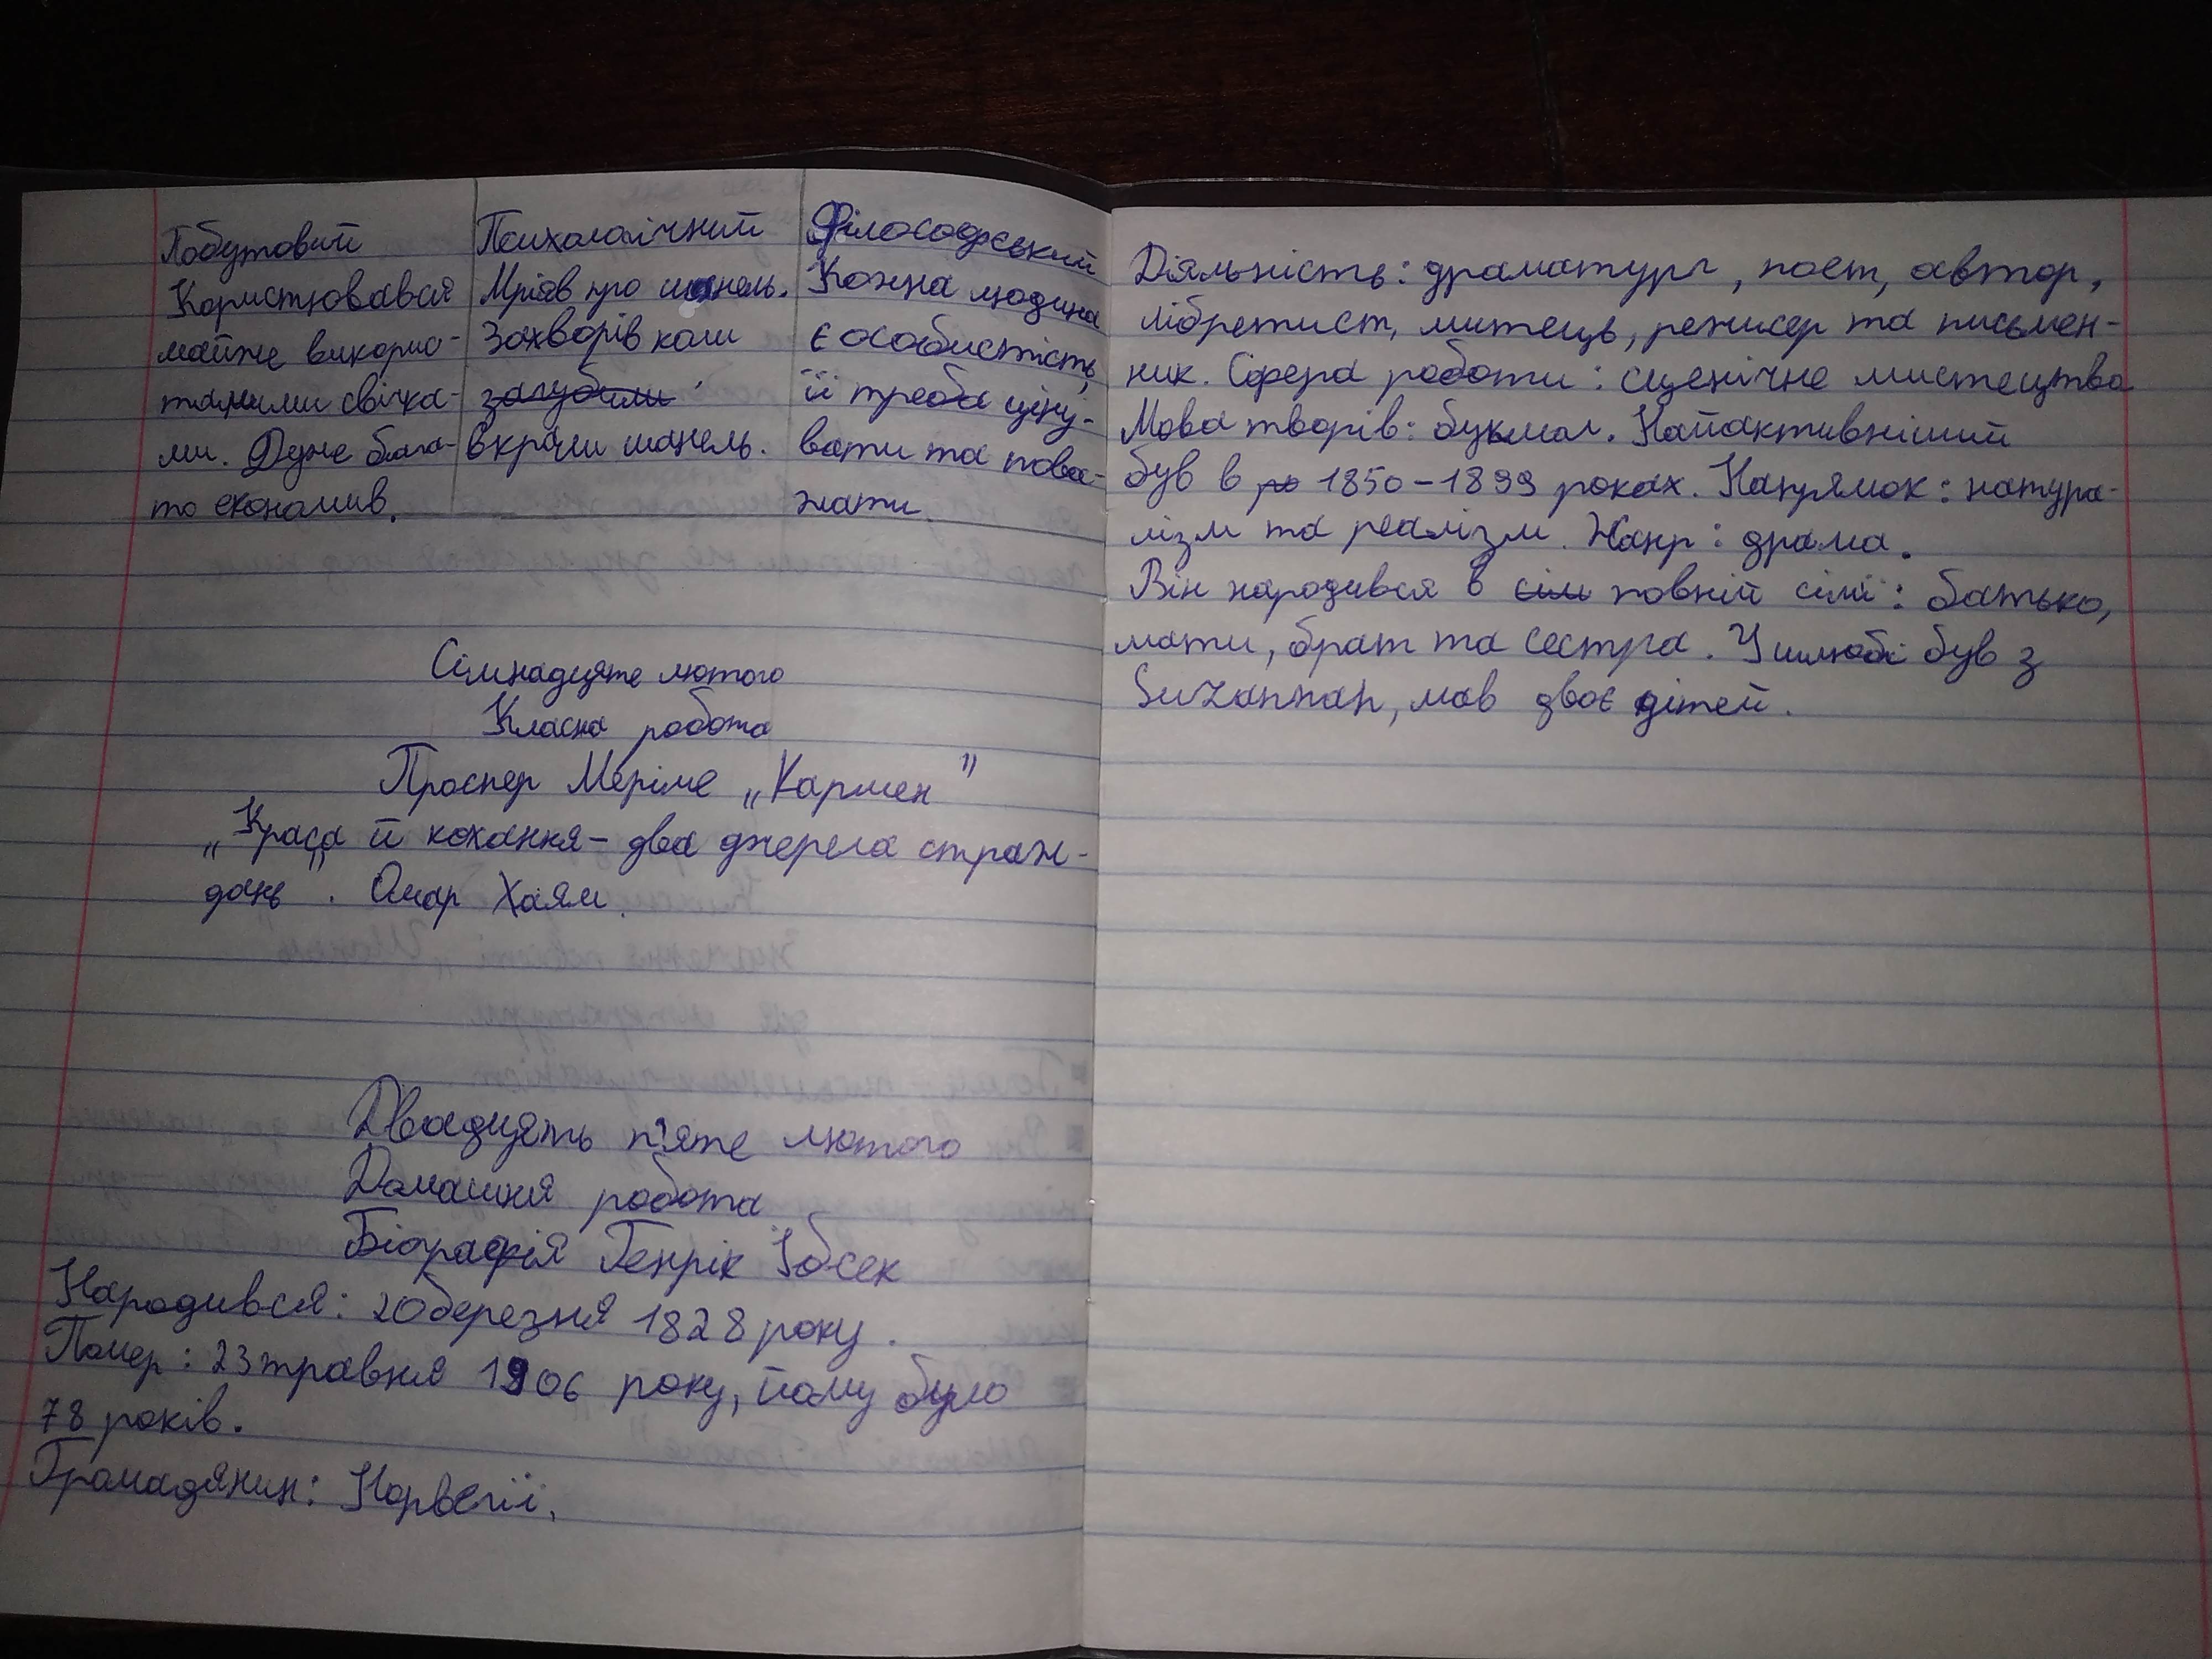 Побутовий
Користювався
майже викорис-
таними свічка-
ми. Дуже бага-
то економив.
Психологічний
Мріяв про шинель.
Захворів коли
загубили
вкрали шинель.
Філософський
Кожна людина
є особистість,
її треба ціну-
вати та пова-
жати.
Сімнадцяте лютого
Класна робота
Проспер Меріме „Кармен"
„Краса й кохання – два джерела страж-
дань". Омар Хаям.
Двадцять п'яте лютого
Домашня робота
Біографія Генрік Ібсек
Народився: 20 березня 1828 року.
Помер: 23 травня 1906 року, йому було
78 років.
Громадянин: Норвегії.
Діяльність: драматург, поет, автор,
лібретист, митець, режисер та письмен-
ник. Сфера роботи: сценічне мистецтво
Мова творів: букмол. Найактивніший
був в ро 1850–1899 роках. Напрямок: натура-
лізм та реалізм. Жанр: драма.
Він народився в сім повній сімї: батько,
мати, брат та сестра. У шлюбі був з
Suzannah, мав двоє дітей.